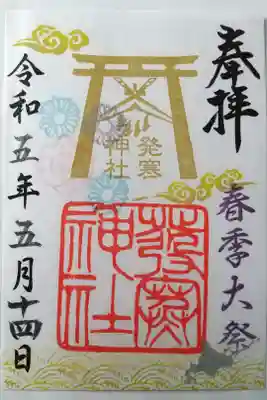 奉拝
春季大祭
発寒
神社
發寒
神社
令和五年五月十四日